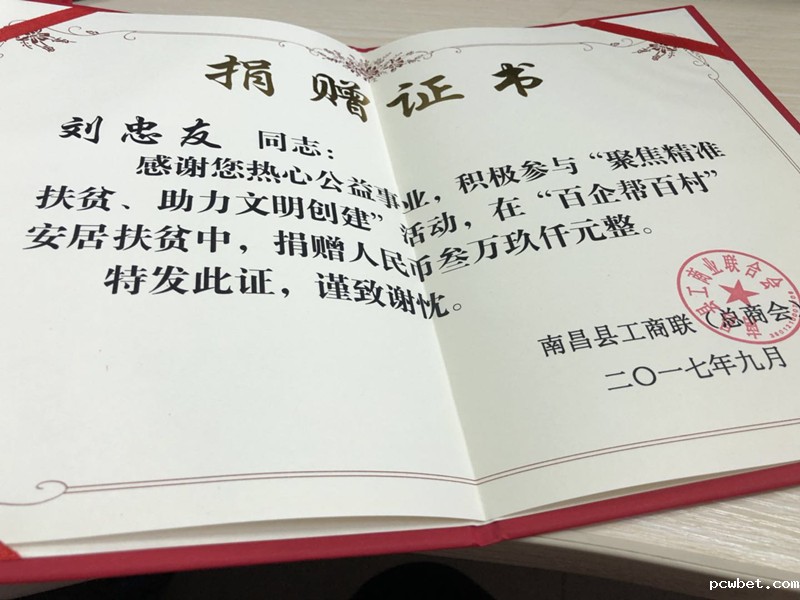 捐赠证书
刘忠友 同志：
感谢您热心公益事业，积极参与“聚焦精准
扶贫、助力文明创建”活动，在“百企帮百村”
安居扶贫中，捐赠人民币叁万玖仟元整。
特发此证，谨致谢忱。
南昌县工商联（总商会）
二〇一七年九月
pcwbet.com